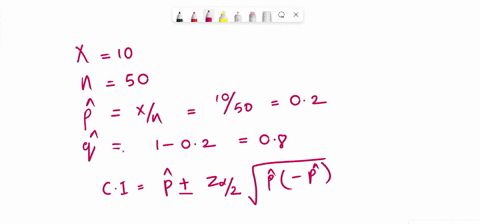 X = 10
n = 50
p̂ = x/n = 10/50 = 0.2
q̂ =. 1 - 0.2 = 0.8
C.I = p̂ ± Zα/2 √p̂(-p̂)